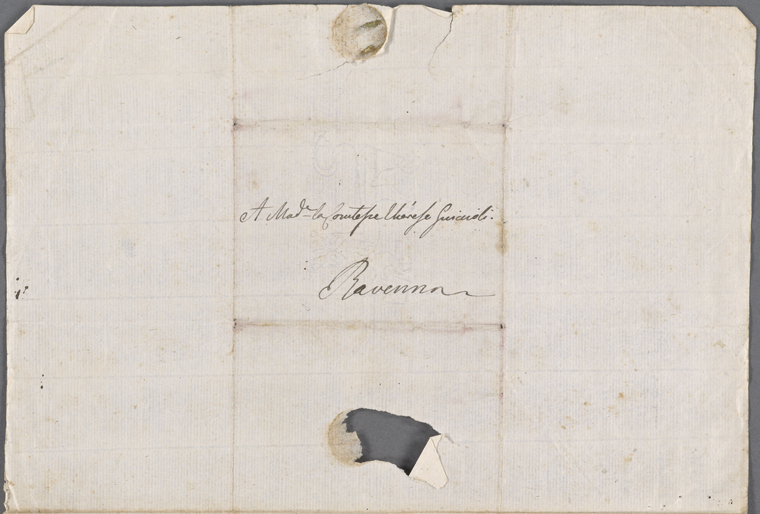 A Mad.e la Comtesse Thérese Guiccioli.
Ravenna